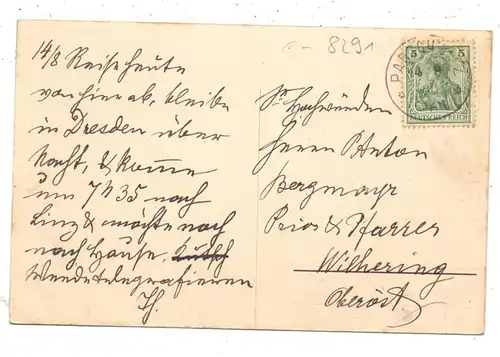 c - 8291
14/8 Reise heute
von hier ab, bleibe
in Dresden über
Nacht, & komme
um 7h 35 nach
Linz & möchte noch
nach Hause.
Werde telegrafieren
5 5
DEUTSCHES REICH
Sr Hochwürden
Herrn P. Anton
Bergmayr
Prior & Pfarrer
Wilhering
Oberöst.